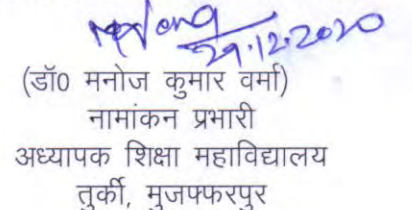 29.12.2020
(डॉ0 मनोज कुमार वर्मा)
नामांकन प्रभारी
अध्यापक शिक्षा महाविद्यालय
तुर्की, मुजफ्फरपुर